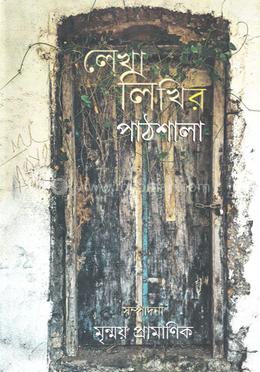 লেখা
লিখির
পাঠশালা
সম্পাদনা
মৃন্ময় প্রামাণিক